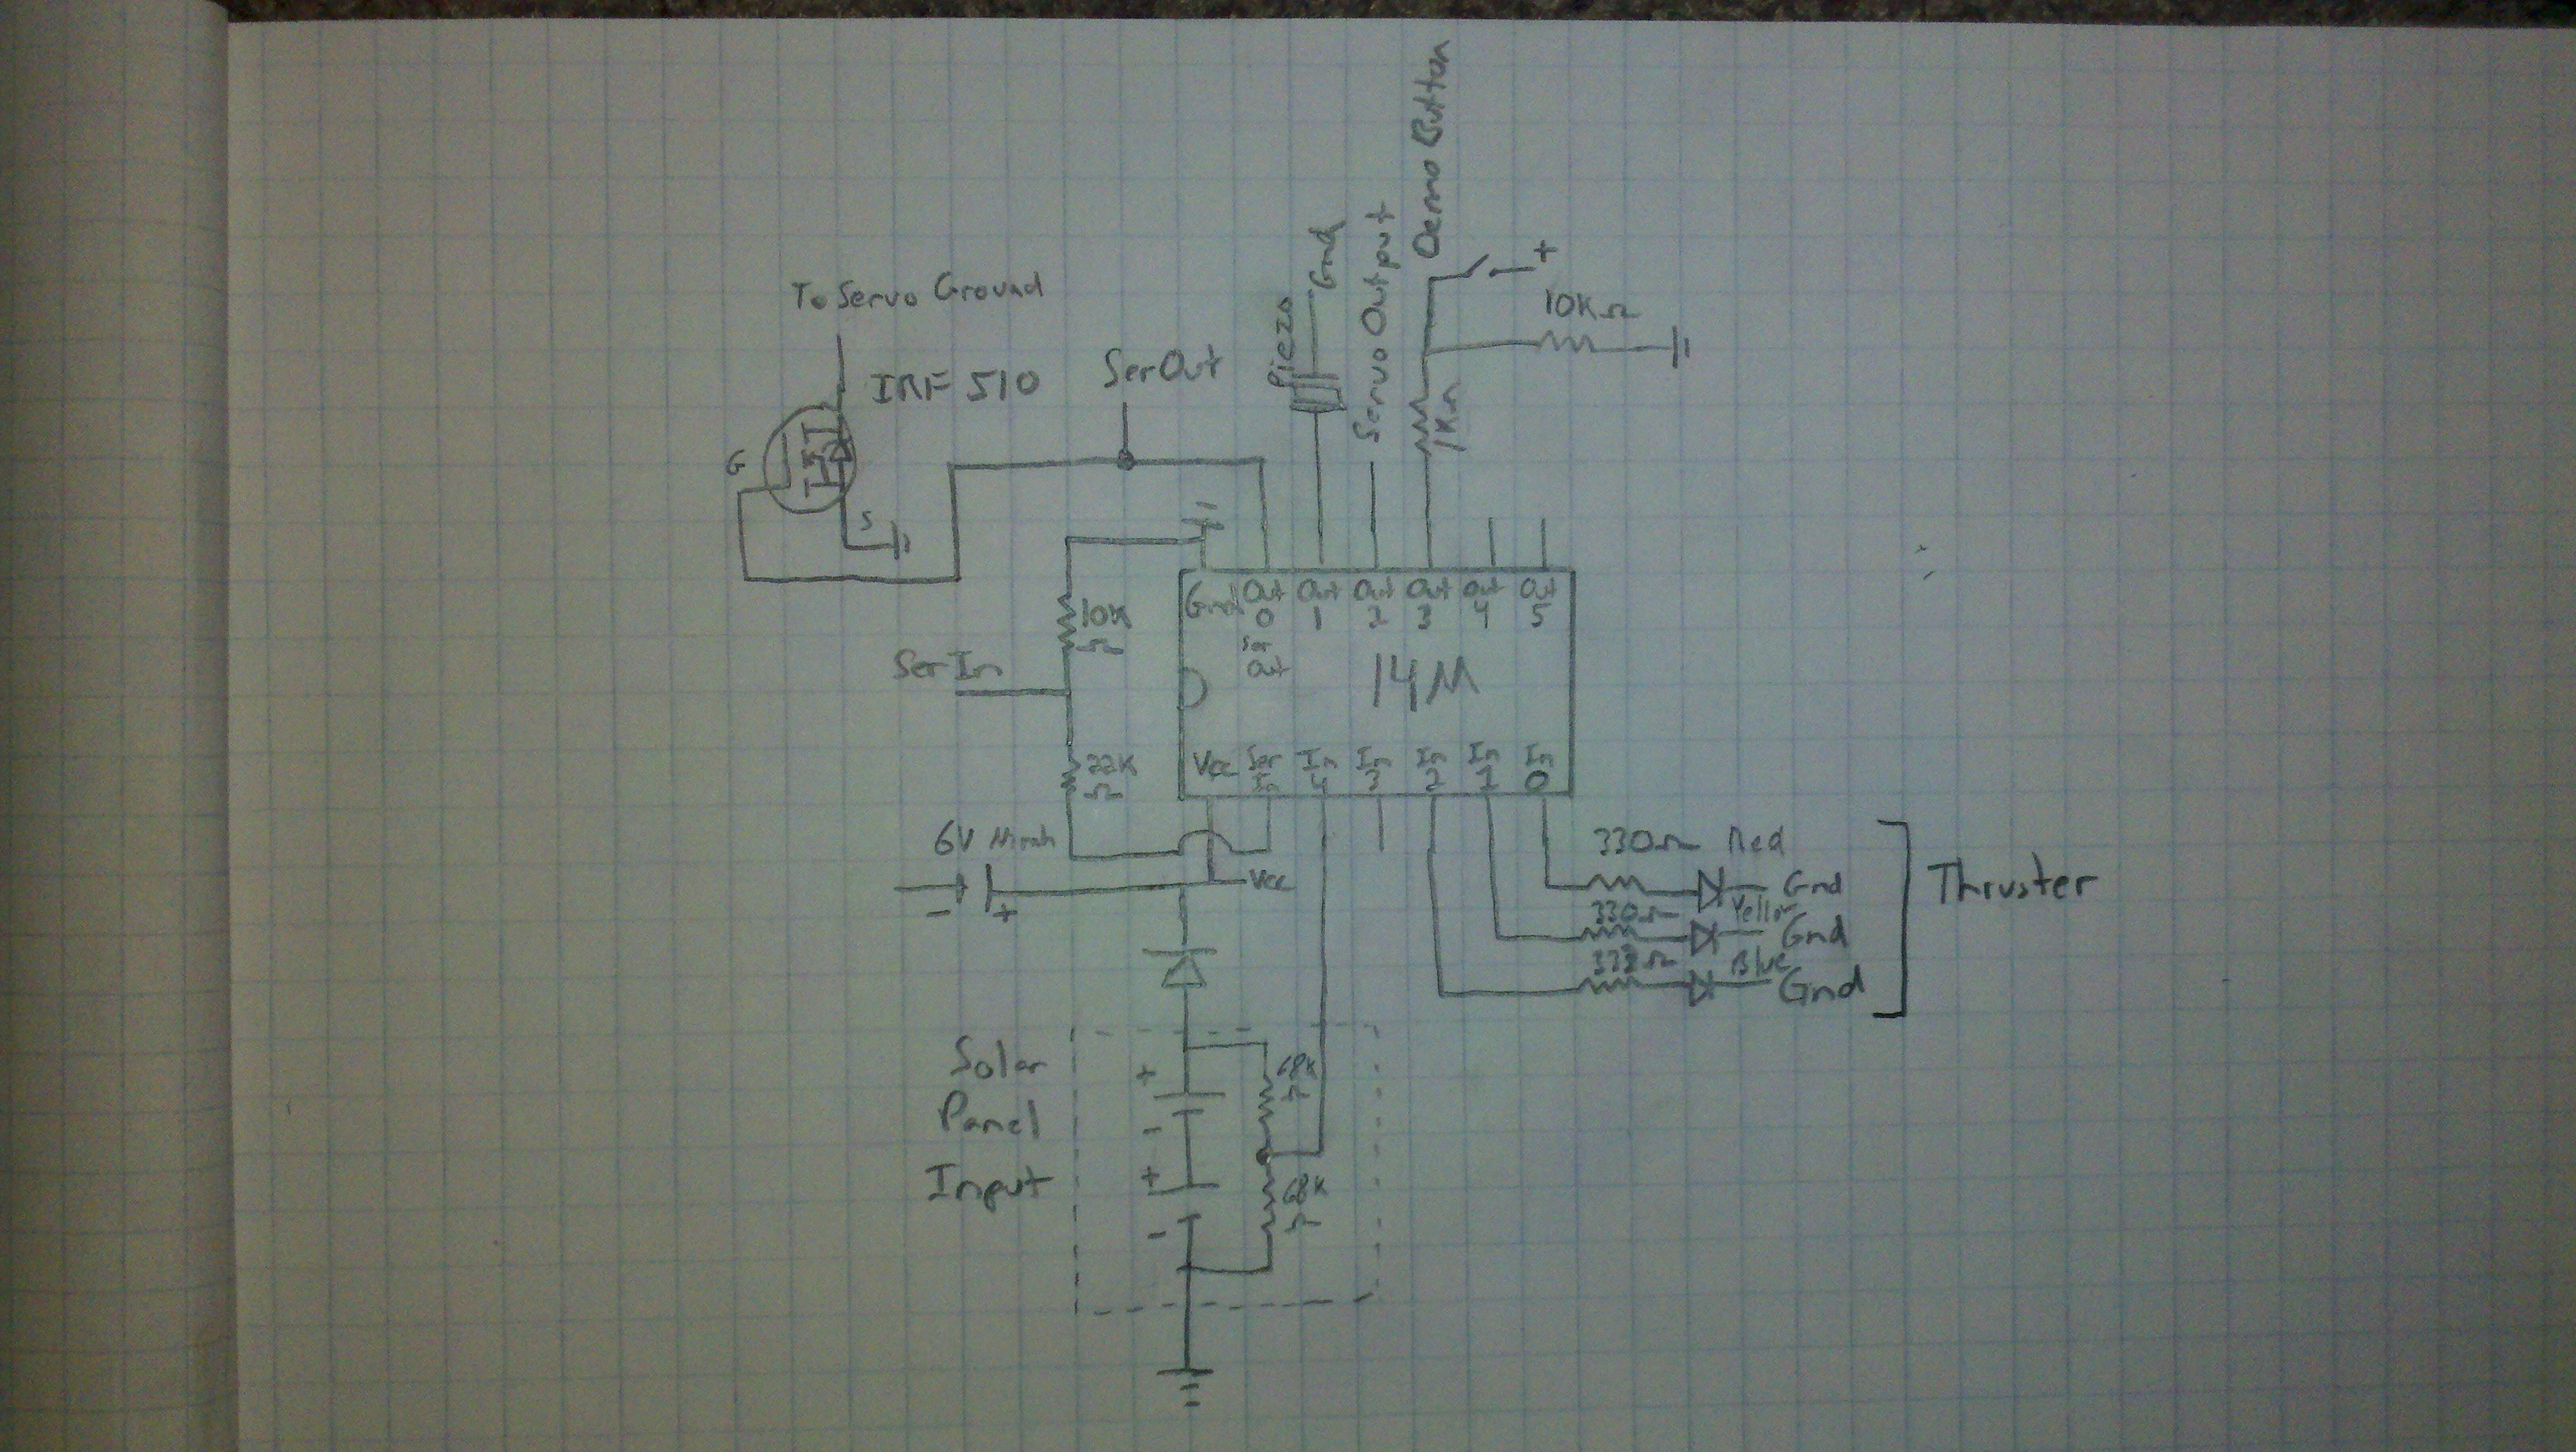 Demo Button
Gnd
Servo Output
Piezo
+
10KΩ
To Servo Ground
IRF 510
SerOut
1KΩ
G
S
Gnd
Out 0
Out 1
Out 2
Out 3
Out 4
Out 5
Ser Out
10K Ω
Ser In
14M
22K Ω
Vcc
Ser In
In 4
In 3
In 2
In 1
In 0
6V Nimh
- +
Vcc
330Ω Red
Gnd
330Ω Yellow
Gnd
Blue
Gnd
Thruster
Solar
Panel
Input
+
-
+
-
68K
68K